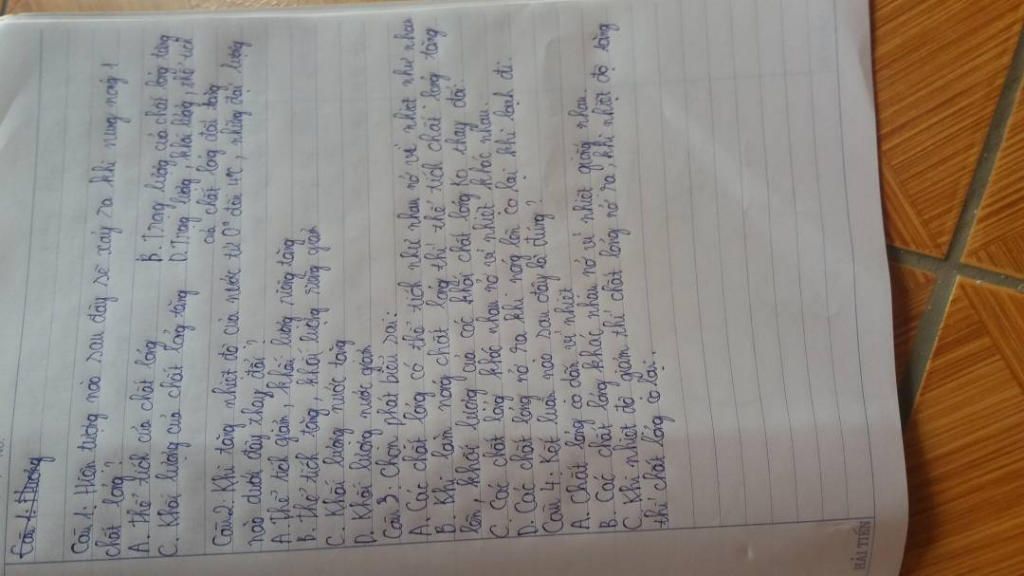 Câu 1: Hiện tượng nào sau đây sẽ xảy ra khi nung nóng 1
chất lỏng?
A. thể tích của chất lỏng B. Trọng lượng của chất lỏng tăng
C. Khối lượng của chất lỏng tăng D. Trọng lượng, khối lượng, thể tích
của chất lỏng đều tăng
Câu 2: Khi tăng nhiệt độ của nước từ 0° đến 4°C, những đại lượng
nào dưới đây thay đổi?
A. Thể tích giảm, khối lượng riêng tăng
B. Thể tích tăng, khối lượng riêng giảm
C. Khối lượng nước tăng
D. Khối lượng nước giảm
Câu 3: Chọn phát biểu sai:
A. Các chất lỏng có thể tích như nhau nở vì nhiệt như nhau
B. Khi làm nóng chất lỏng thì thể tích chất lỏng tăng
lên, khối lượng của các khối chất lỏng ko thay đổi.
C. Các chất lỏng khác nhau nở vì nhiệt khác nhau.
D. Các chất lỏng nở ra khi nóng lên, co lại khi lạnh đi.
Câu 4: Kết luận nào sau đây là đúng?
A. Chất lỏng co dãn vì nhiệt
B. Các chất lỏng khác nhau nở vì nhiệt giống nhau.
C. Khi nhiệt độ giảm thì chất lỏng nở ra, khi nhiệt độ tăng
thì chất lỏng co lại.
HẢI TIẾN